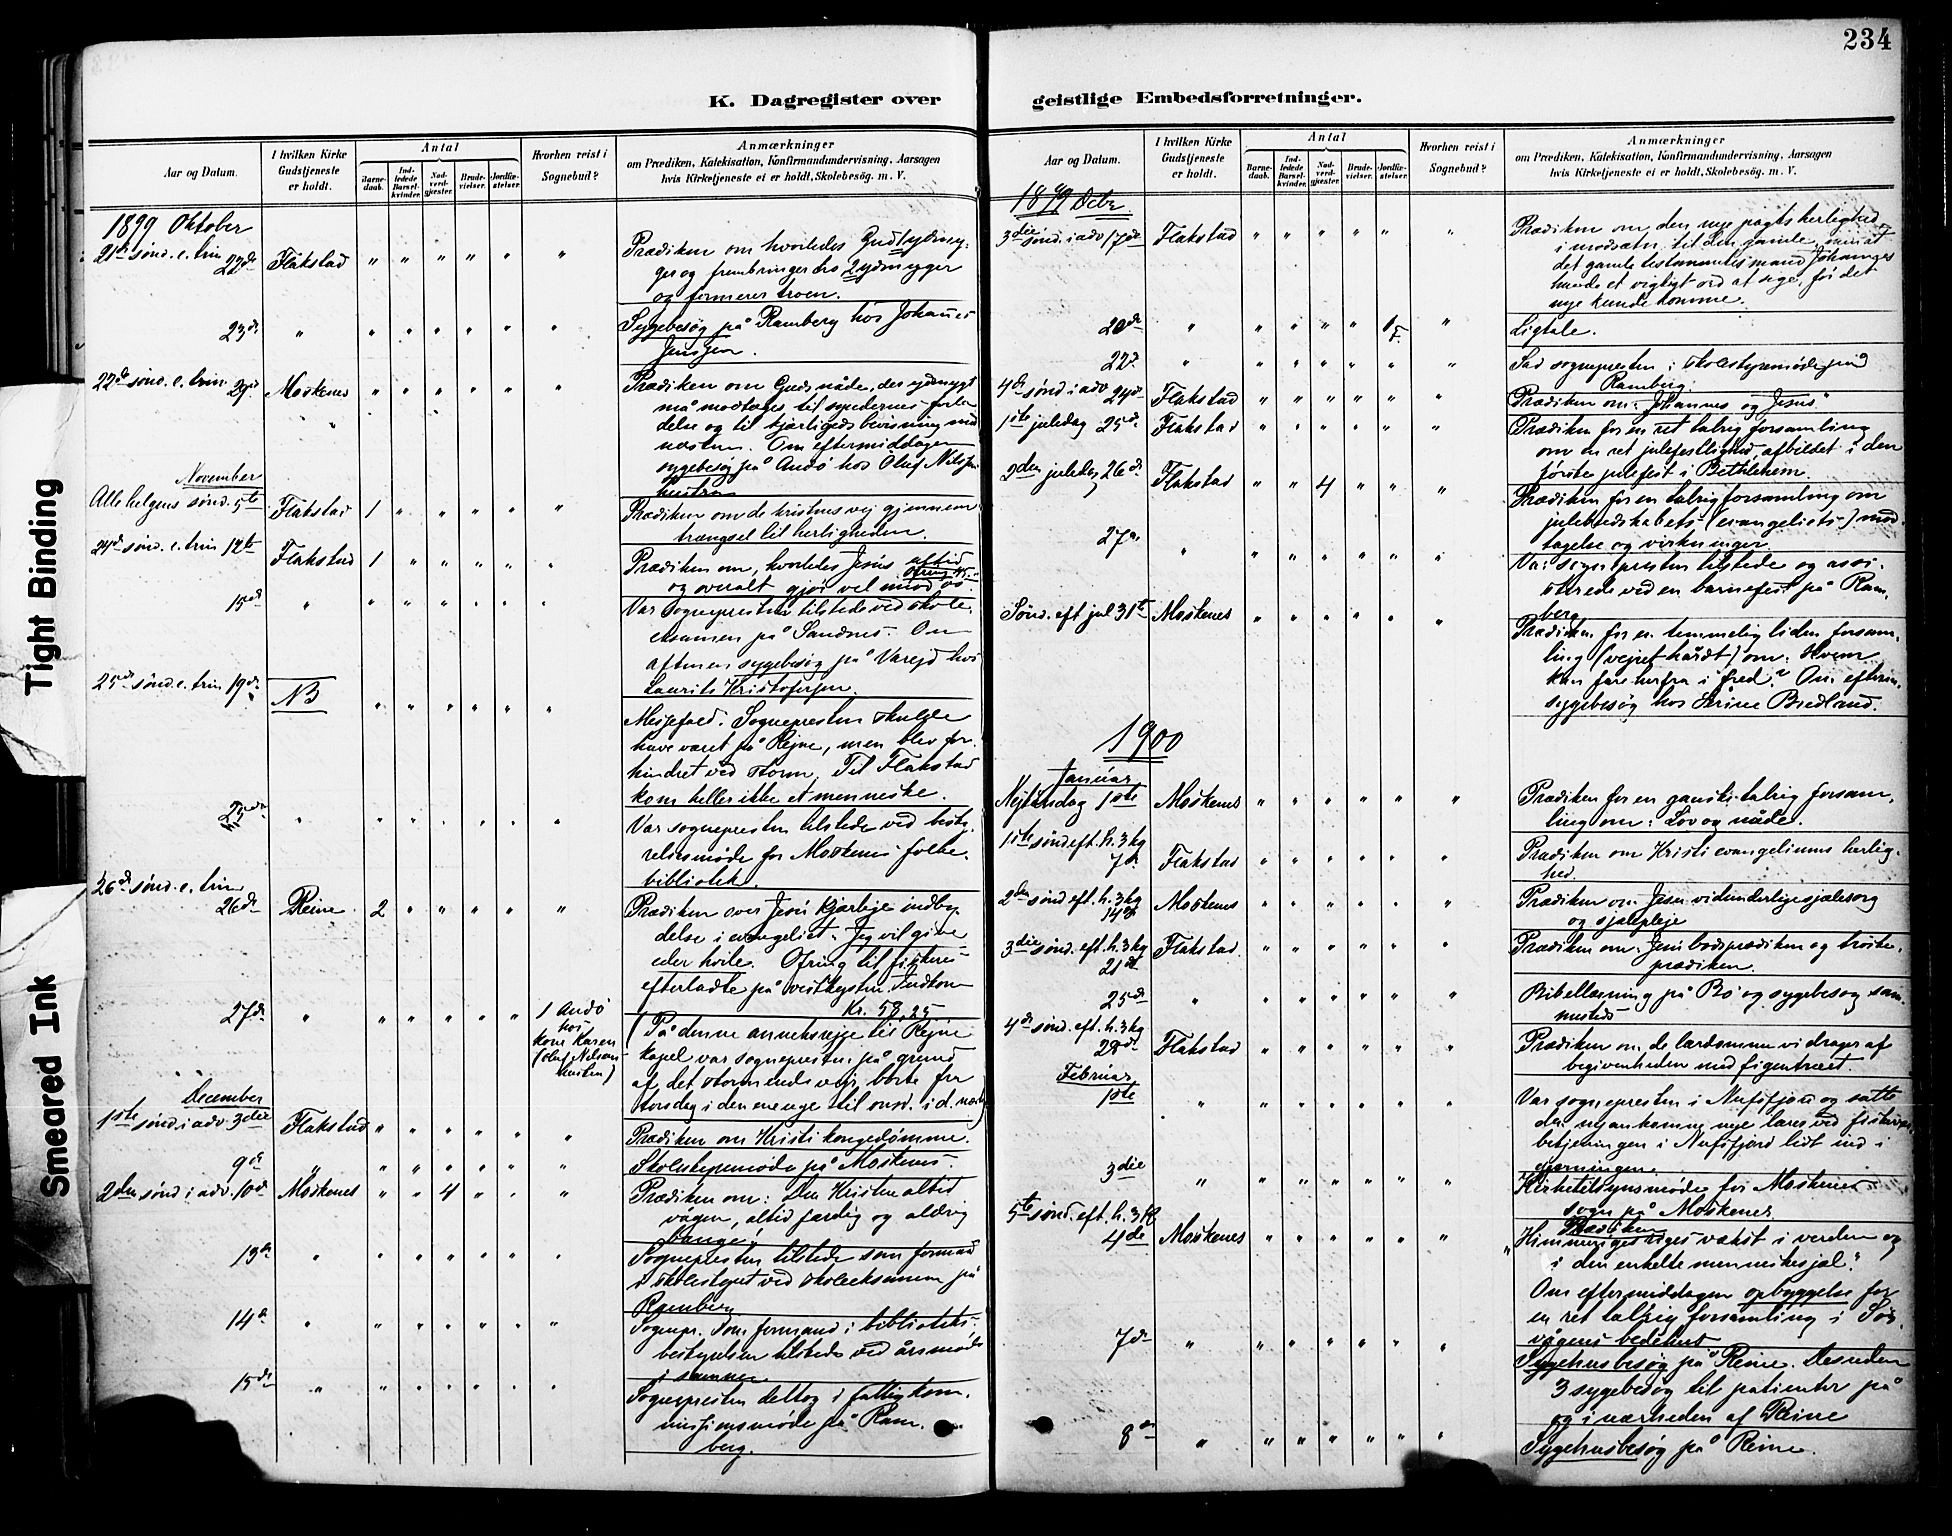 234
K. Dagregister over
geistlige Embedsforretninger.
Tight Binding
Smeared Ink
Aar og Datum.
I hvilken Kirke Gudstjeneste er holdt.
Antal
Barnedaab.
Indledede Barselkvinder.
Nadverdgjester.
Brudevielser.
Jordfæstelser.
Hvorhen reist i Sognebud?
Anmærkninger
om Prædiken, Katekisation, Konfirmandundervisning, Aarsagen
hvis Kirketjeneste ei er holdt, Skolebesøg. m. V.
1899 Oktober
21de sønd. e. trin 22de Flakstad " " " " " " Prædiken om hvorledes Gud 1) ydmy-
ger og frembringer tro 2 ydmyger
og formerer troen.
23de " " " " " " " Sygebesøg på Ramberg hos Johannes
Jensen.
22de sønd. e. trin 29de Moskenes " " " " " " Prædiken om Guds nåde, der ydmygt
må modtages til syndernes forla-
delse og til kjærligheds bevisning mod
næsten. Om eftermiddagen
sygebesøg på Andø hos Oluf Nilsens
hustru
November
Allehelgens sønd. 5te Flakstad 1 " " " " " Prædiken om de kristnes vej gjennem
trængsel til herligheden.
24de sønd. e. trin 12te Flakstad 1 " " " " " Prædiken om, hvorledes Jesus altid
og overalt gjør vel imod os.
15de " " " " " " " Var sognepresten tilstede ved skole-
eksamen på Sandnes. Om
aftenen sygebesøg på Varejd hos
Laurits Kristofersen.
25de sønd. e. trin 19de NB " " " " " " Messefald. Sognepresten skulde
have været på Rejne, men blev for-
hindret ved storm. Til Flakstad
kom heller ikke et menneske.
25de " " " " " " " Var sognepresten tilstede ved besty-
relsesmøde for Moskenes folke-
bibliotek.
26de sønd. e. trin
26de Reine 2 " " " " " Prædiken over Jesu kjærlige indby-
delse i evangeliet: Jeg vil give
eder hvile. Ofring til fiskeres
efterladte på vestkysten. Indkom
Kr. 58,25
27de " " " " " " 1 Andø
hos
kone Karen
(Oluf Nilsens
hustru)
På denne annexrejse til Rejne
kapel var sognepresten på grund
af det stormende vejr borte fra
torsdag i den ene uge til onsd. i d. næste
December
1ste sønd. i adv. 3die Flakstad " " " " " " Prædiken om Kristi kongedømme.
9de " " " " " " " Skolestyremøde på Moskenes.
2den sønd i adv. 10de Moskenes " " 4 " " " Prædiken om: Den Kristen altid
vågen, altid færdig og aldrig
bange!
13de " " " " " " " Sognepresten tilstede som formand
i skolestyret ved skoleeksamen på
Ramberg.
14de " " " " " " " Sognepr. som formand i biblioteks-
bestyrelsen tilstede ved årsmøde
i samme.
15de " " " " " " " Sognepresten deltog i fattigkom-
missionsmøde på Ram-
berg.
Aar og Datum.
I hvilken Kirke Gudstjeneste er holdt.
Antal
Barnedaab.
Indledede Barselkvinder.
Nadverdgjester.
Brudevielser.
Jordfæstelser.
Hvorhen reist i Sognebud?
Anmærkninger
om Prædiken, Katekisation, Konfirmandundervisning, Aarsagen
hvis Kirketjeneste ei er holdt, Skolebesøg. m. V.
1899 Decbr
3die sønd. i adv 17de Flakstad " " " " " " Prædiken om den nye pagts herlighed
i modsætn. til den gamle, men at
det gamle testamentes mand Johannes
havde et vigtigt ord at sige, før det
nye kunde komme.
20de " " " " " 1 " Ligtale.
22de " " " " " " " Sad sognepresten i skolestyremøde på
Ramberg.
4de sønd i adv 24de Flakstad " " " " " " Prædiken om: Johannes og Jesus"
1ste juledag 25de Flakstad " " " " " " Prædiken for en ret talrig forsamling
om en ret julefestlighed, afbildet i den
første julefest i Bethlehem.
2den juledag 26de Flakstad " " 4 " " " Prædiken for en talrig forsamling om
julebudskabets (evangeliets) mod-
tagelse og virkninger
27de " " " " " " " Var sognepresten tilstede og assi-
sterede ved en barnefest på Ram-
berg
Sønd. eft jul 31te Moskenes " " " " " " Prædiken for en temmelig liden forsam-
ling (vejret hårdt) om: Hvem
kan fare herfra i fred? Om efterm.
sygebesøg hos Serine Bredland.
1900
Januar
Nejtårsdag 1ste Moskenes " " " " " " Prædiken for en ganske talrig forsam-
ling om: Lov og nåde.
1ste sønd eft. h. 3 kg
7de Flakstad " " " " " " Prædiken om Kristi evangeliums herlig-
hed.
2den sønd eft. h. 3 kg
14de Moskenes " " " " " " Prædiken om Jesu vidunderlige sjælesorg
og sjælepleje
3die sønd. eft. h. 3 kg
21de Flakstad. " " " " " " Prædiken om: Jesu bodsprædiken og trøste-
prædiken.
25de " " " " " " " Bibellæsning på Bø og sygebesøg sam-
mesteds
4de sønd. eft. h. 3 kg
28de Flakstad " " " " " " Prædiken om de lærdomme vi drager af
begivenheden med figentræet.
Februar
1ste " " " " " " " Var sognepresten i Nufsfjord og satte
den nyankomne nye lærer ved fiskeri-
betjeningen i Nufsfjord lidt ind i
gjerningen.
3die " " " " " " " Kirketilsynsmøde for Moskenes
sogn på Moskenes.
5te sønd. eft. h. 3 k
4de Moskenes " " " " " " Prædiken
"Himmeriges riges vækst i verden og
i den enkelte menneskesjæl."
Om eftermiddagen opbyggelse for
en ret talrig forsamling i Sør-
vågens bedehus
7de " " " " " " " Sygehusbesøg på Reine. Desuden
3 sygebesøg til patienter på
og i nærheden af Reine
8de " " " " " " " Sygehusbesøg på Reine.